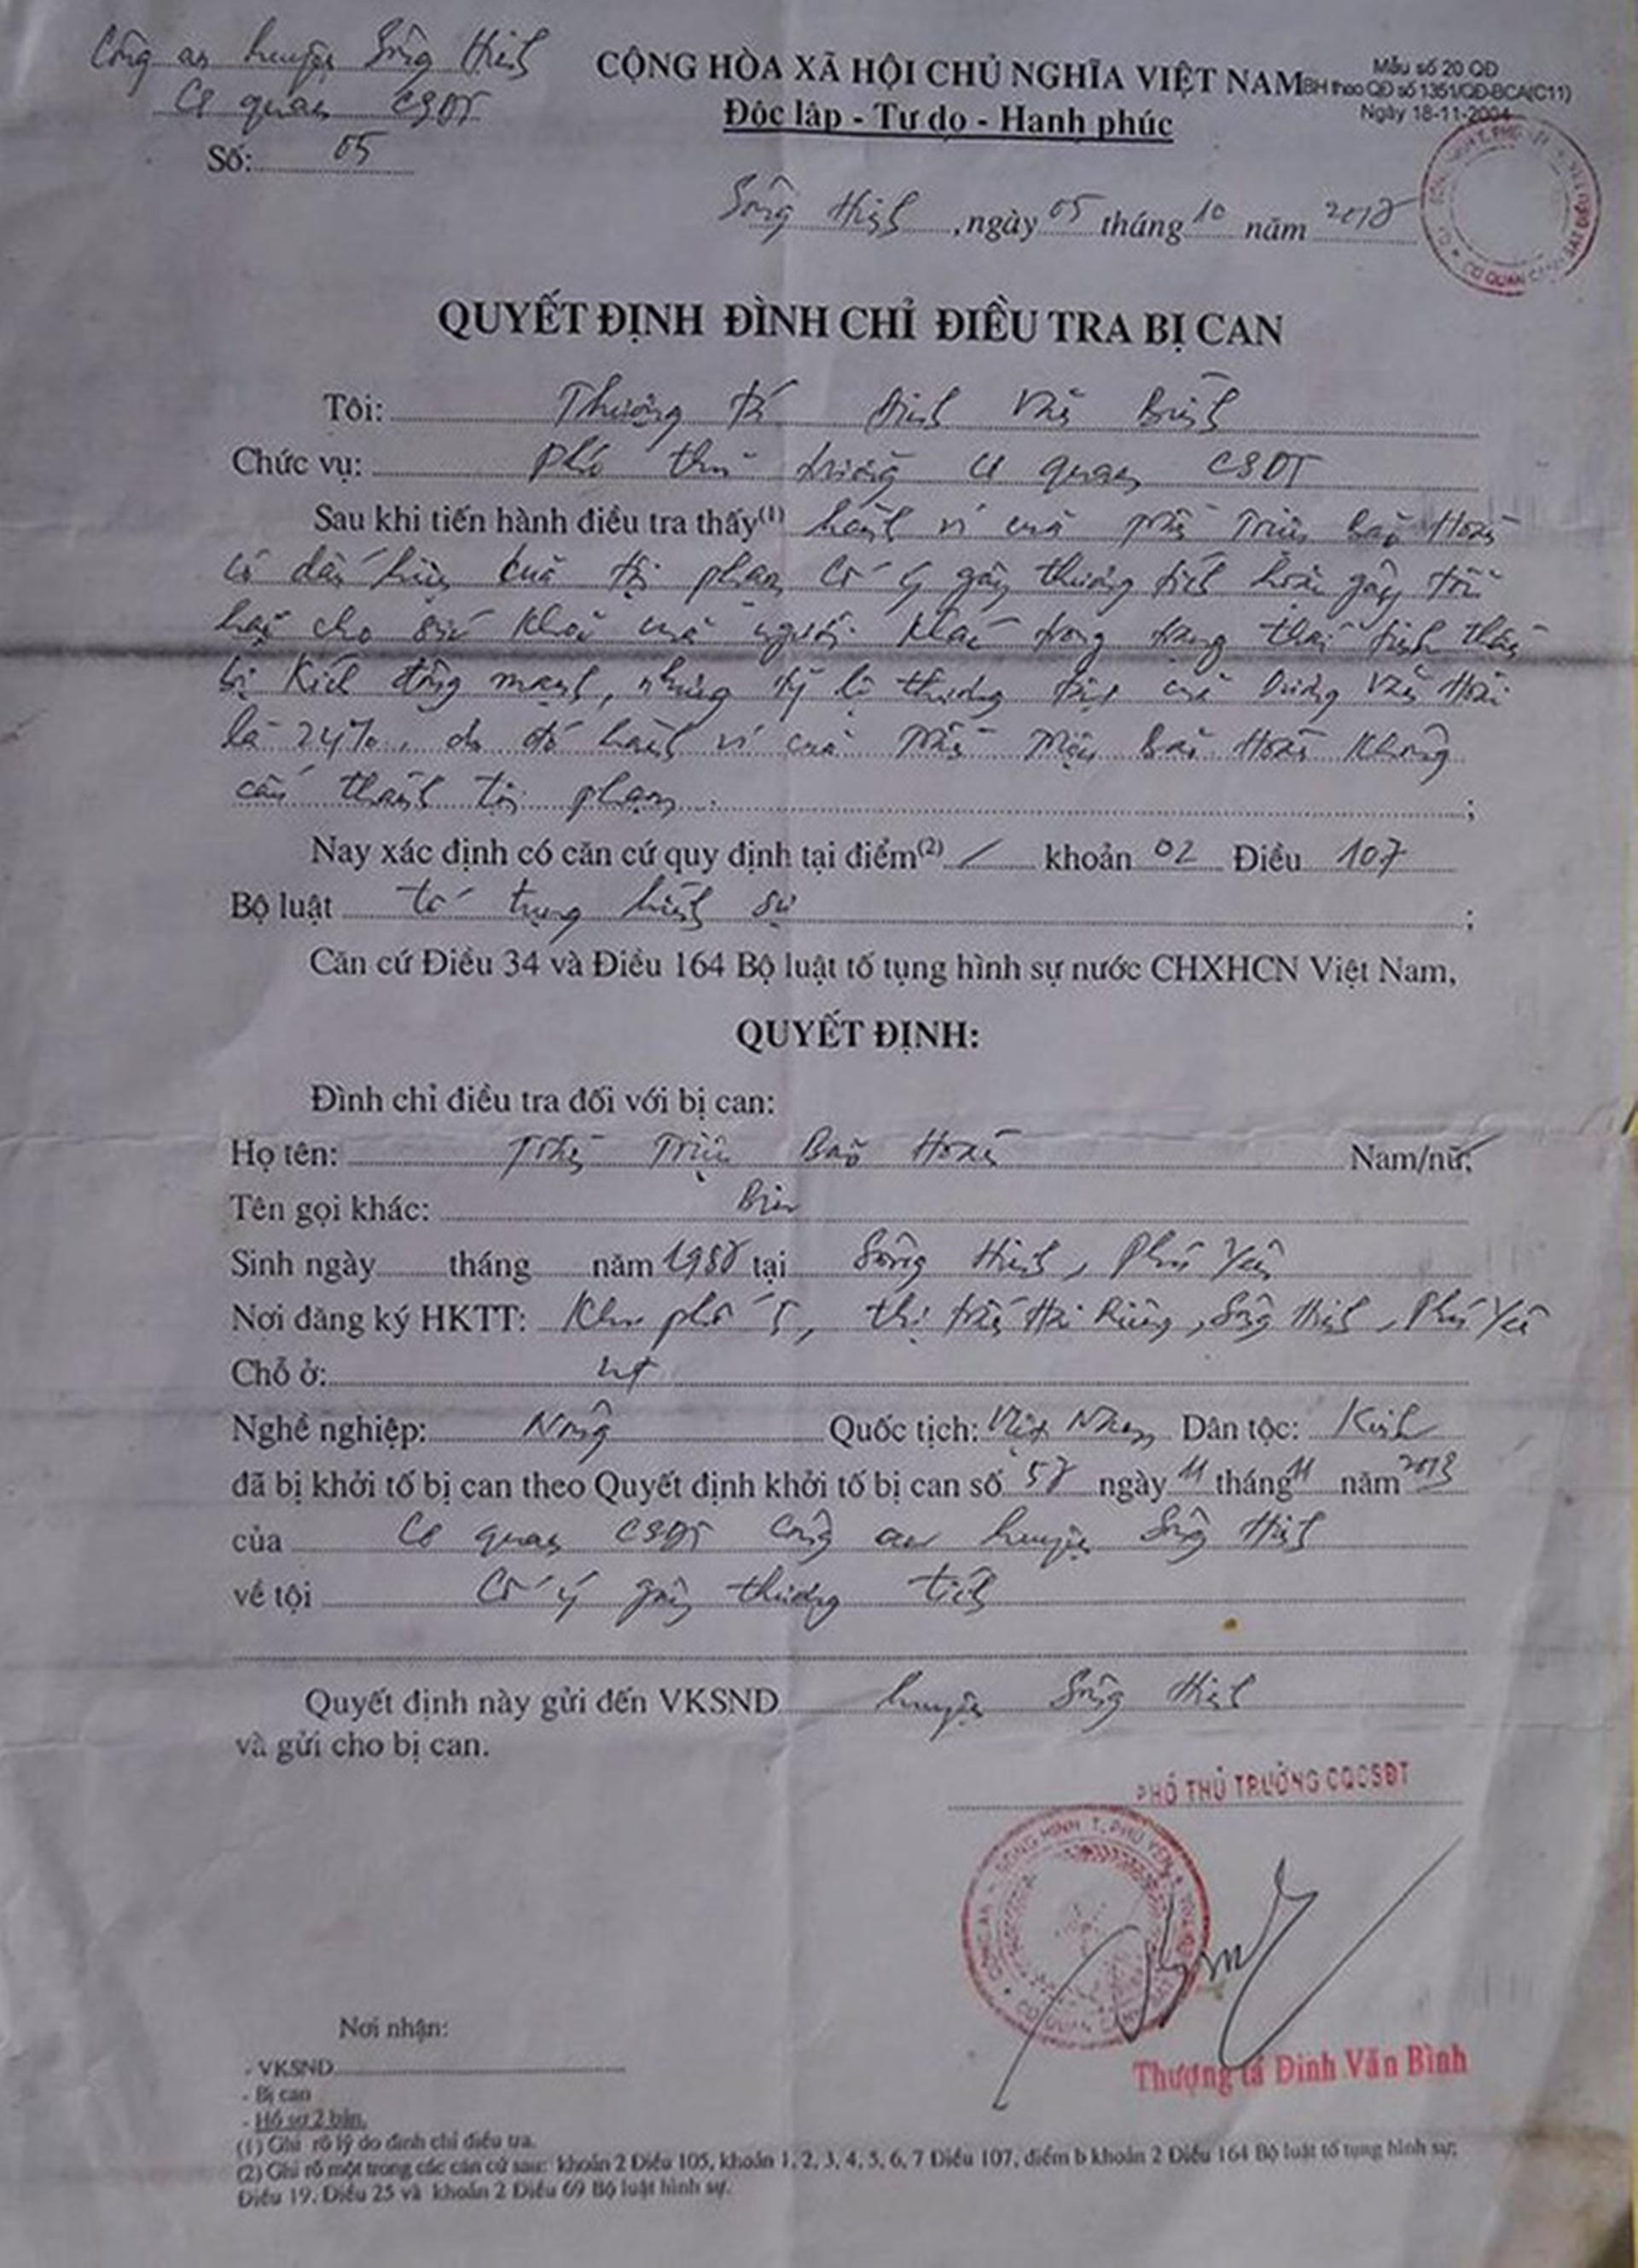 Công an huyện Sông Hinh
Cơ quan CSĐT
Số: 05
CỘNG HÒA XÃ HỘI CHỦ NGHĨA VIỆT NAM
Độc lập - Tự do - Hạnh phúc
Mẫu số 20 QĐ
BH theo QĐ số 1351/QĐ-BCA(C11)
Ngày 18-11-2004
Sông Hinh, ngày 05 tháng 10 năm 2018
QUYẾT ĐỊNH ĐÌNH CHỈ ĐIỀU TRA BỊ CAN
Tôi: Thượng tá Đinh Văn Bình
Chức vụ: Phó thủ trưởng cơ quan CSĐT
Sau khi tiến hành điều tra thấy(1) hành vi của Triệu Bảo Hoàn
có dấu hiệu của tội phạm cố ý gây thương tích hoặc gây tổn
hại cho sức khoẻ của người khác trong trạng thái tinh thần
bị kích động mạnh, nhưng tỷ lệ thương tật của Dương Văn
là 24%, do đó hành vi của Bảo Hoàn không
cấu thành tội phạm.;
Nay xác định có căn cứ quy định tại điểm(2) / khoản 02 Điều 107
Bộ luật tố tụng hình sự;
Căn cứ Điều 34 và Điều 164 Bộ luật tố tụng hình sự nước CHXHCN Việt Nam,
QUYẾT ĐỊNH:
Đình chỉ điều tra đối với bị can:
Họ tên: Triệu Bảo Hoàn Nam/nữ;
Tên gọi khác:
Sinh ngày tháng năm 1988 tại Sông Hinh, Phú Yên
Nơi đăng ký HKTT: Khu phố 5, thị trấn Hai Riêng, Sông Hinh, Phú Yên
Chỗ ở: nt
Nghề nghiệp: Nông Quốc tịch: Việt Nam Dân tộc: Kinh
đã bị khởi tố bị can theo Quyết định khởi tố bị can số 58 ngày 11 tháng 11 năm 2013
của Cơ quan CSĐT Công an huyện Sông Hinh
về tội Cố ý gây thương tích
Quyết định này gửi đến VKSND huyện Sông Hinh
và gửi cho bị can.
PHÓ THỦ TRƯỞNG CQCSĐT
Thượng tá Đinh Văn Bình
Nơi nhận:
- VKSND
- Bị can
- Hồ sơ 2 bản.
(1) Ghi rõ lý do đình chỉ điều tra.
(2) Ghi rõ một trong các căn cứ sau: khoản 2 Điều 105, khoản 1, 2, 3, 4, 5, 6, 7 Điều 107, điểm b khoản 2 Điều 164 Bộ luật tố tụng hình sự;
Điều 19, Điều 25 và khoản 2 Điều 69 Bộ luật hình sự.